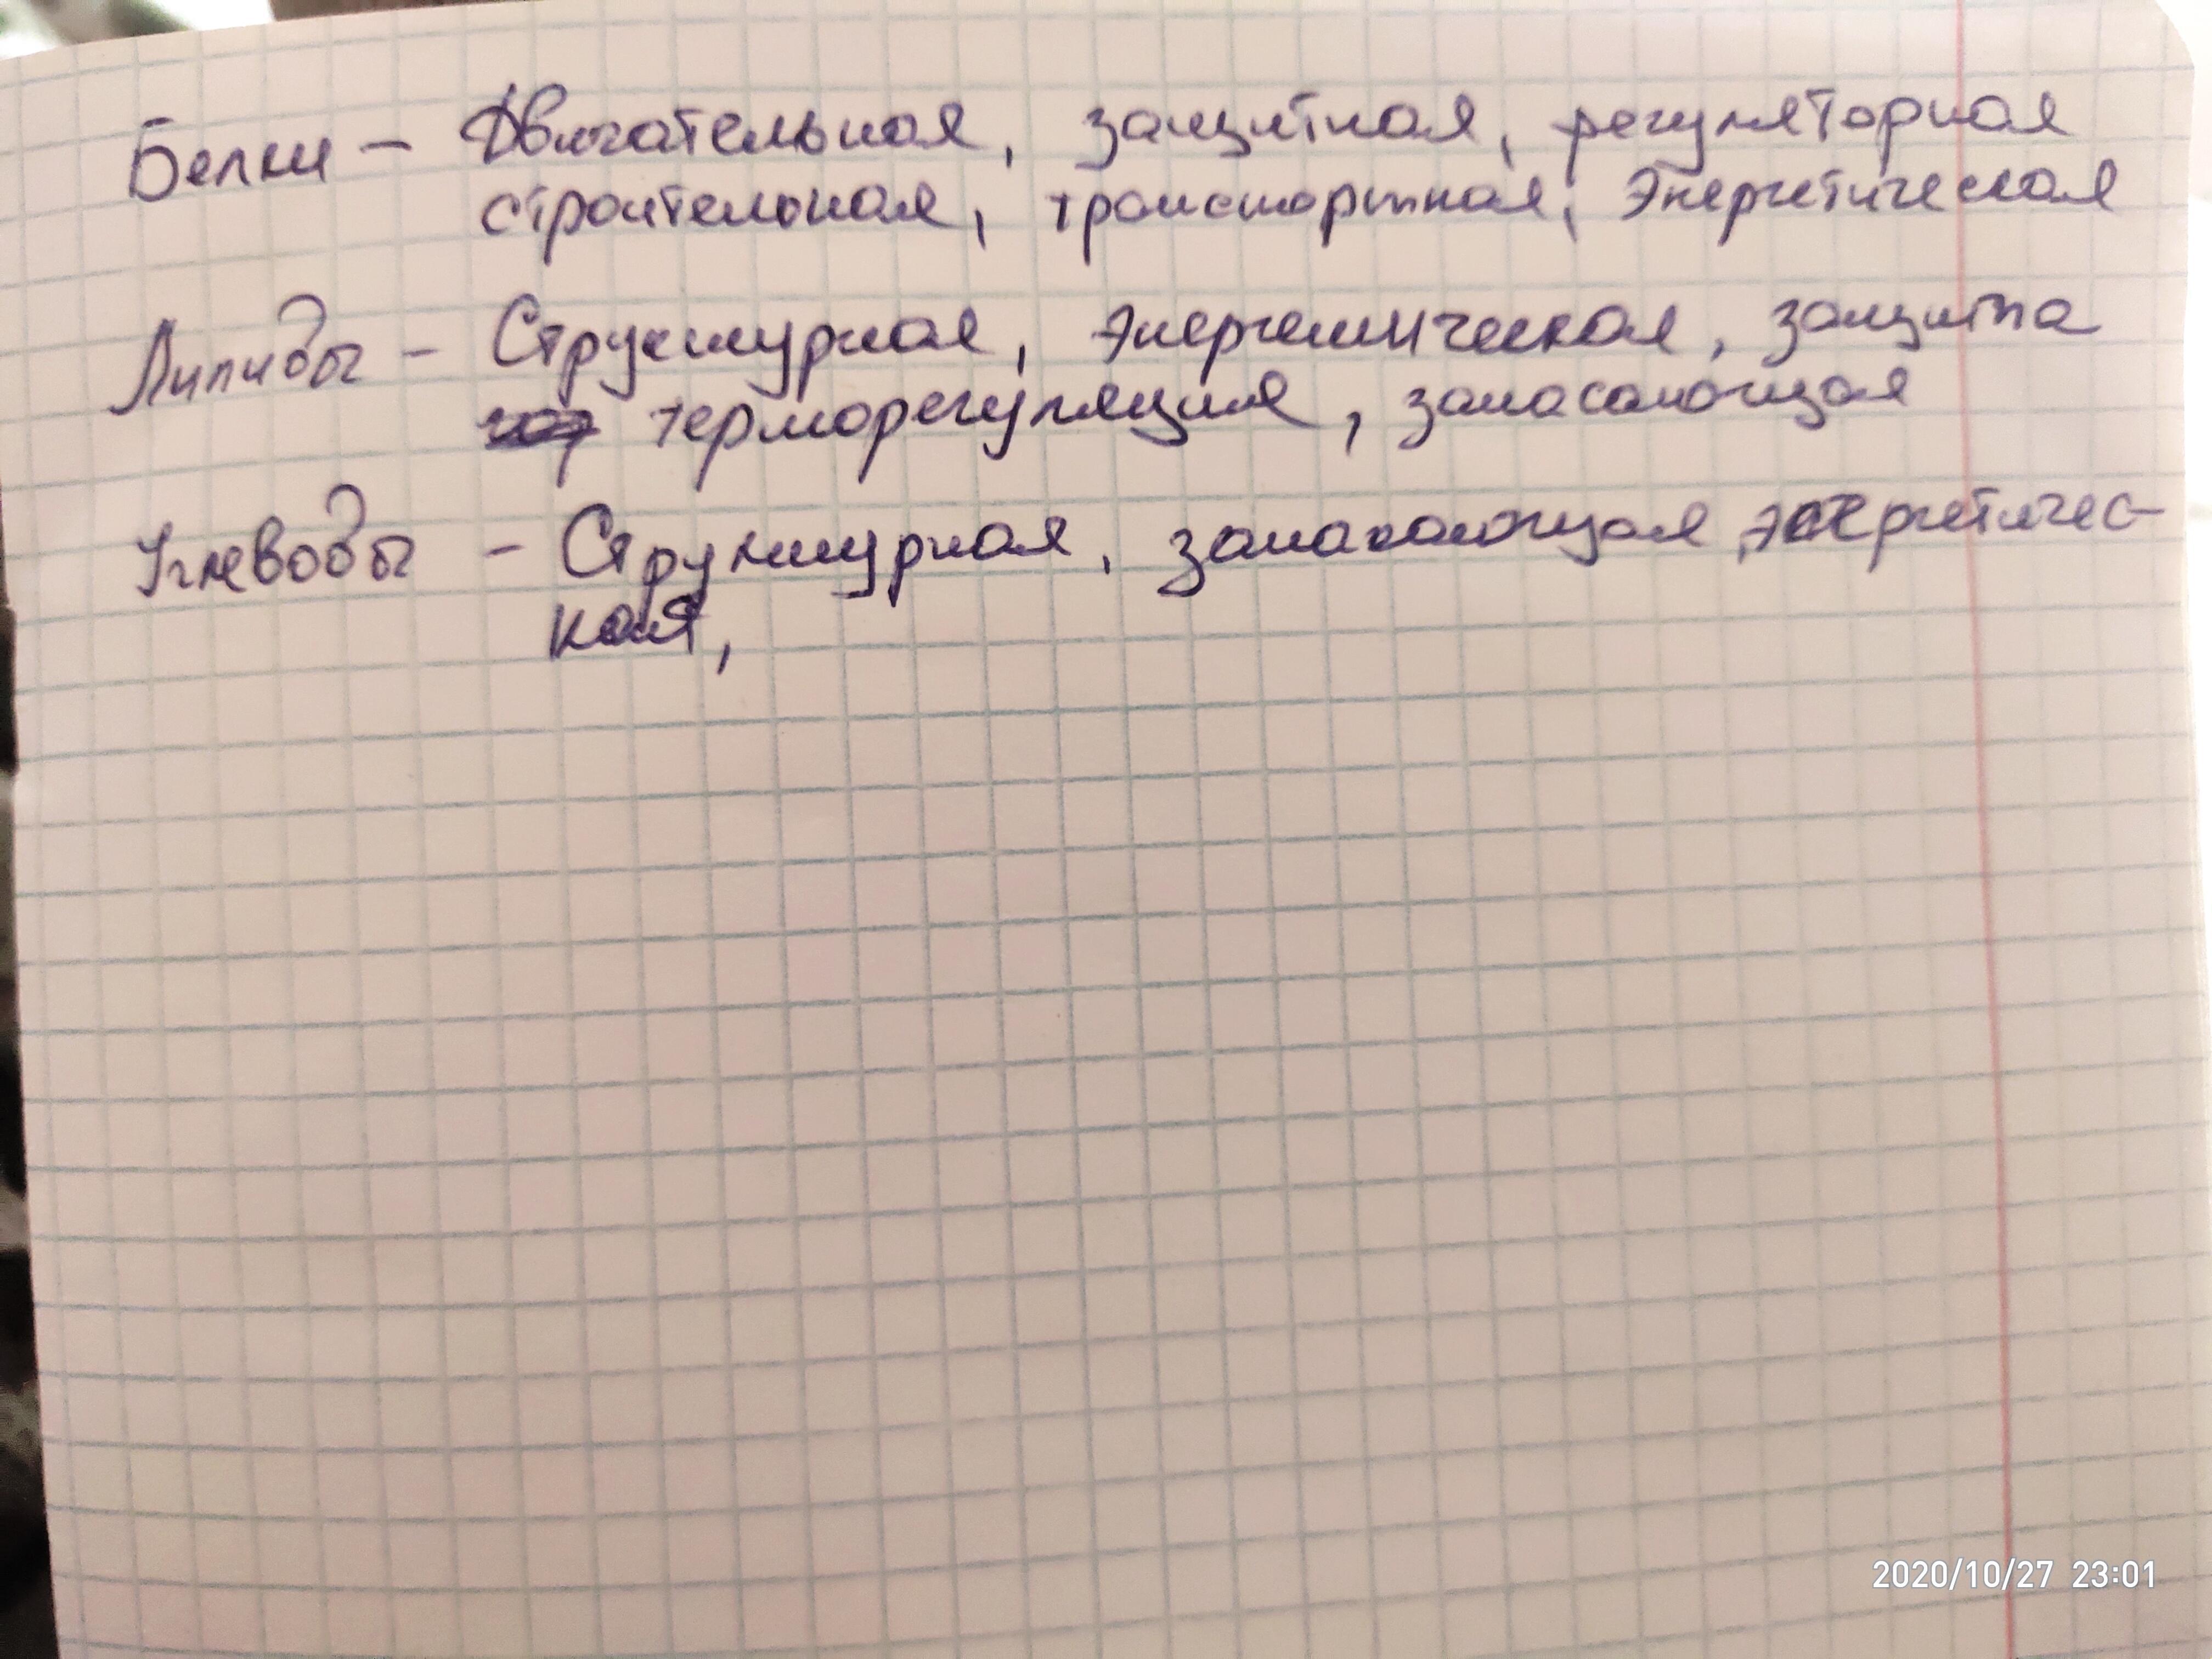 Белки – Двигательная, защитная, регуляторная
строительная, транспортная, Энергетическая
Липиды – Структурная, энергетическая, защита
терморегуляция, запасающая
Углеводы – Структурная, запасающая, энергетичес-
кая,
2020/10/27 23:01